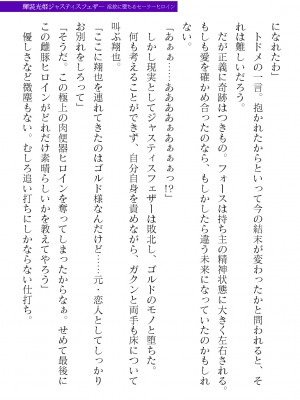 輝装光姫ジャスティスフェザー 凌欲に堕ちるセーラーヒロイン
になれたわ」
トドメの一言。抱かれたからといって今の結末が変わったかと問われると、そ
れは難しいだろう。
だが正義に奇跡はつきもの。フォースは持ち主の精神状態に大きく左右される。
もしも愛を確かめ合ったのなら、もしかしたら違う未来になっていたのかもしれ
ない。
「あぁぁ……ああああああぁぁぁっ!?」
しかし現実としてジャスティスフェザーは敗北し、ゴールドのモノと堕ちた。
何も考えることができず、自分自身を責めながら、ガクンと両手も床について
叫ぶ翔也。
「ここに翔也を連れてきたのはゴルド様なんだけど……元・恋人としてしっかり
お別れをしろって」
「そうだ。この極上の肉便器ヒロインを奪ってしまったからなぁ。せめて最後に
この雌豚ヒロインがどれだけ素晴らしいかを教えてやろう」
優しさなど微塵もない。むしろ追い打ちにしかならない仕打ち。